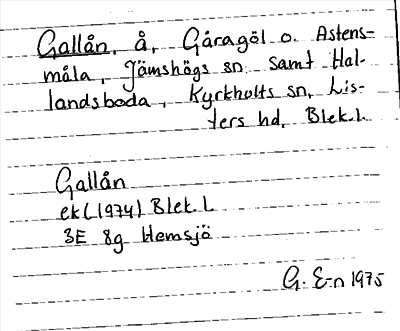 Gallån, å, Gåragöl o. Astens-
måla, Jämshögs sn. samt Hal-
landsboda, Kyrkhults sn, Lis-
ters hd, Blek. l.
Gallån
ek (1974) Blek. l
3E 8g Hemsjö
G. E-n 1975